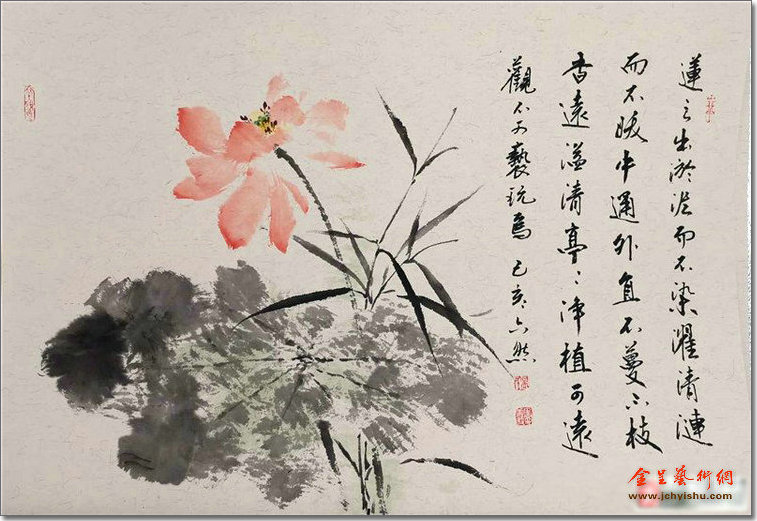 蓮之出淤泥而不染濯清漣
而不妖中通外直不蔓不枝
香遠溢清亭亭净植可遠
觀不可褻玩焉 己亥 然
金呈藝術網
www.jchyishu.com